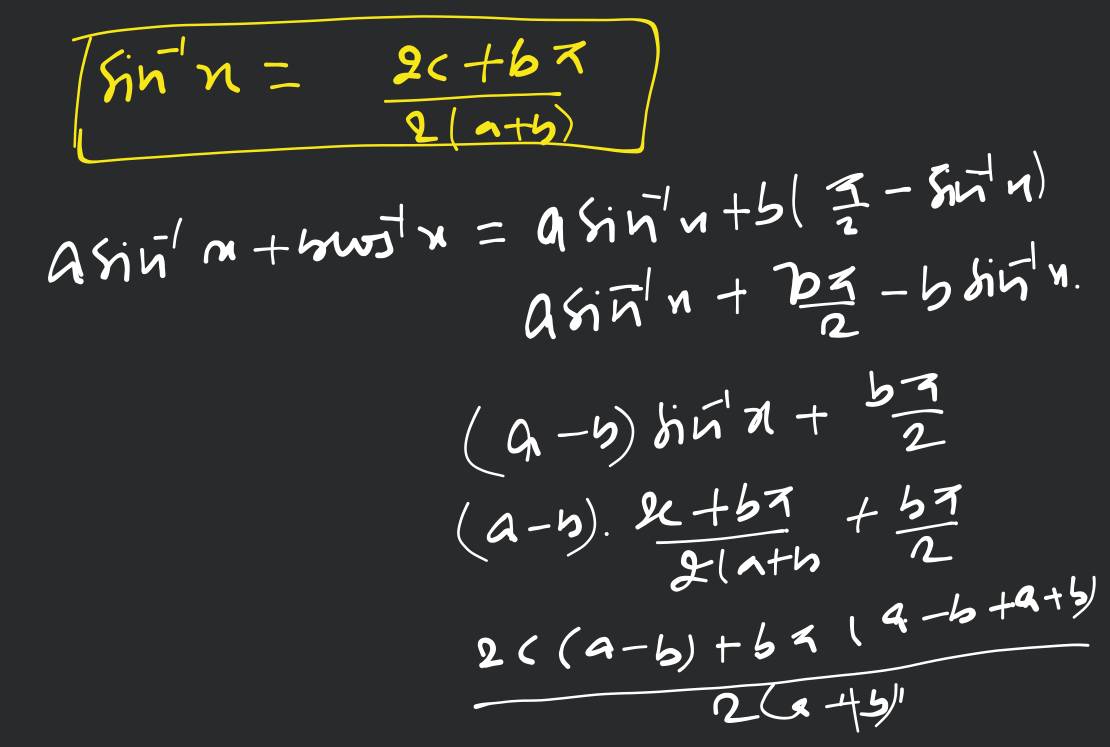 sin⁻¹ x = (2c + bπ) / (2(a+b))
a sin⁻¹ x + b cos⁻¹ x = a sin⁻¹ x + b( π/2 − sin⁻¹ x)
a sin⁻¹ x + bπ/2 − b sin⁻¹ x.
(a − b) sin⁻¹ x + bπ/2
(a−b). (2c + bπ) / (2(a+b) + bπ/2
(2c(a−b) + bπ (a−b+a+b)) / (2(a+b))